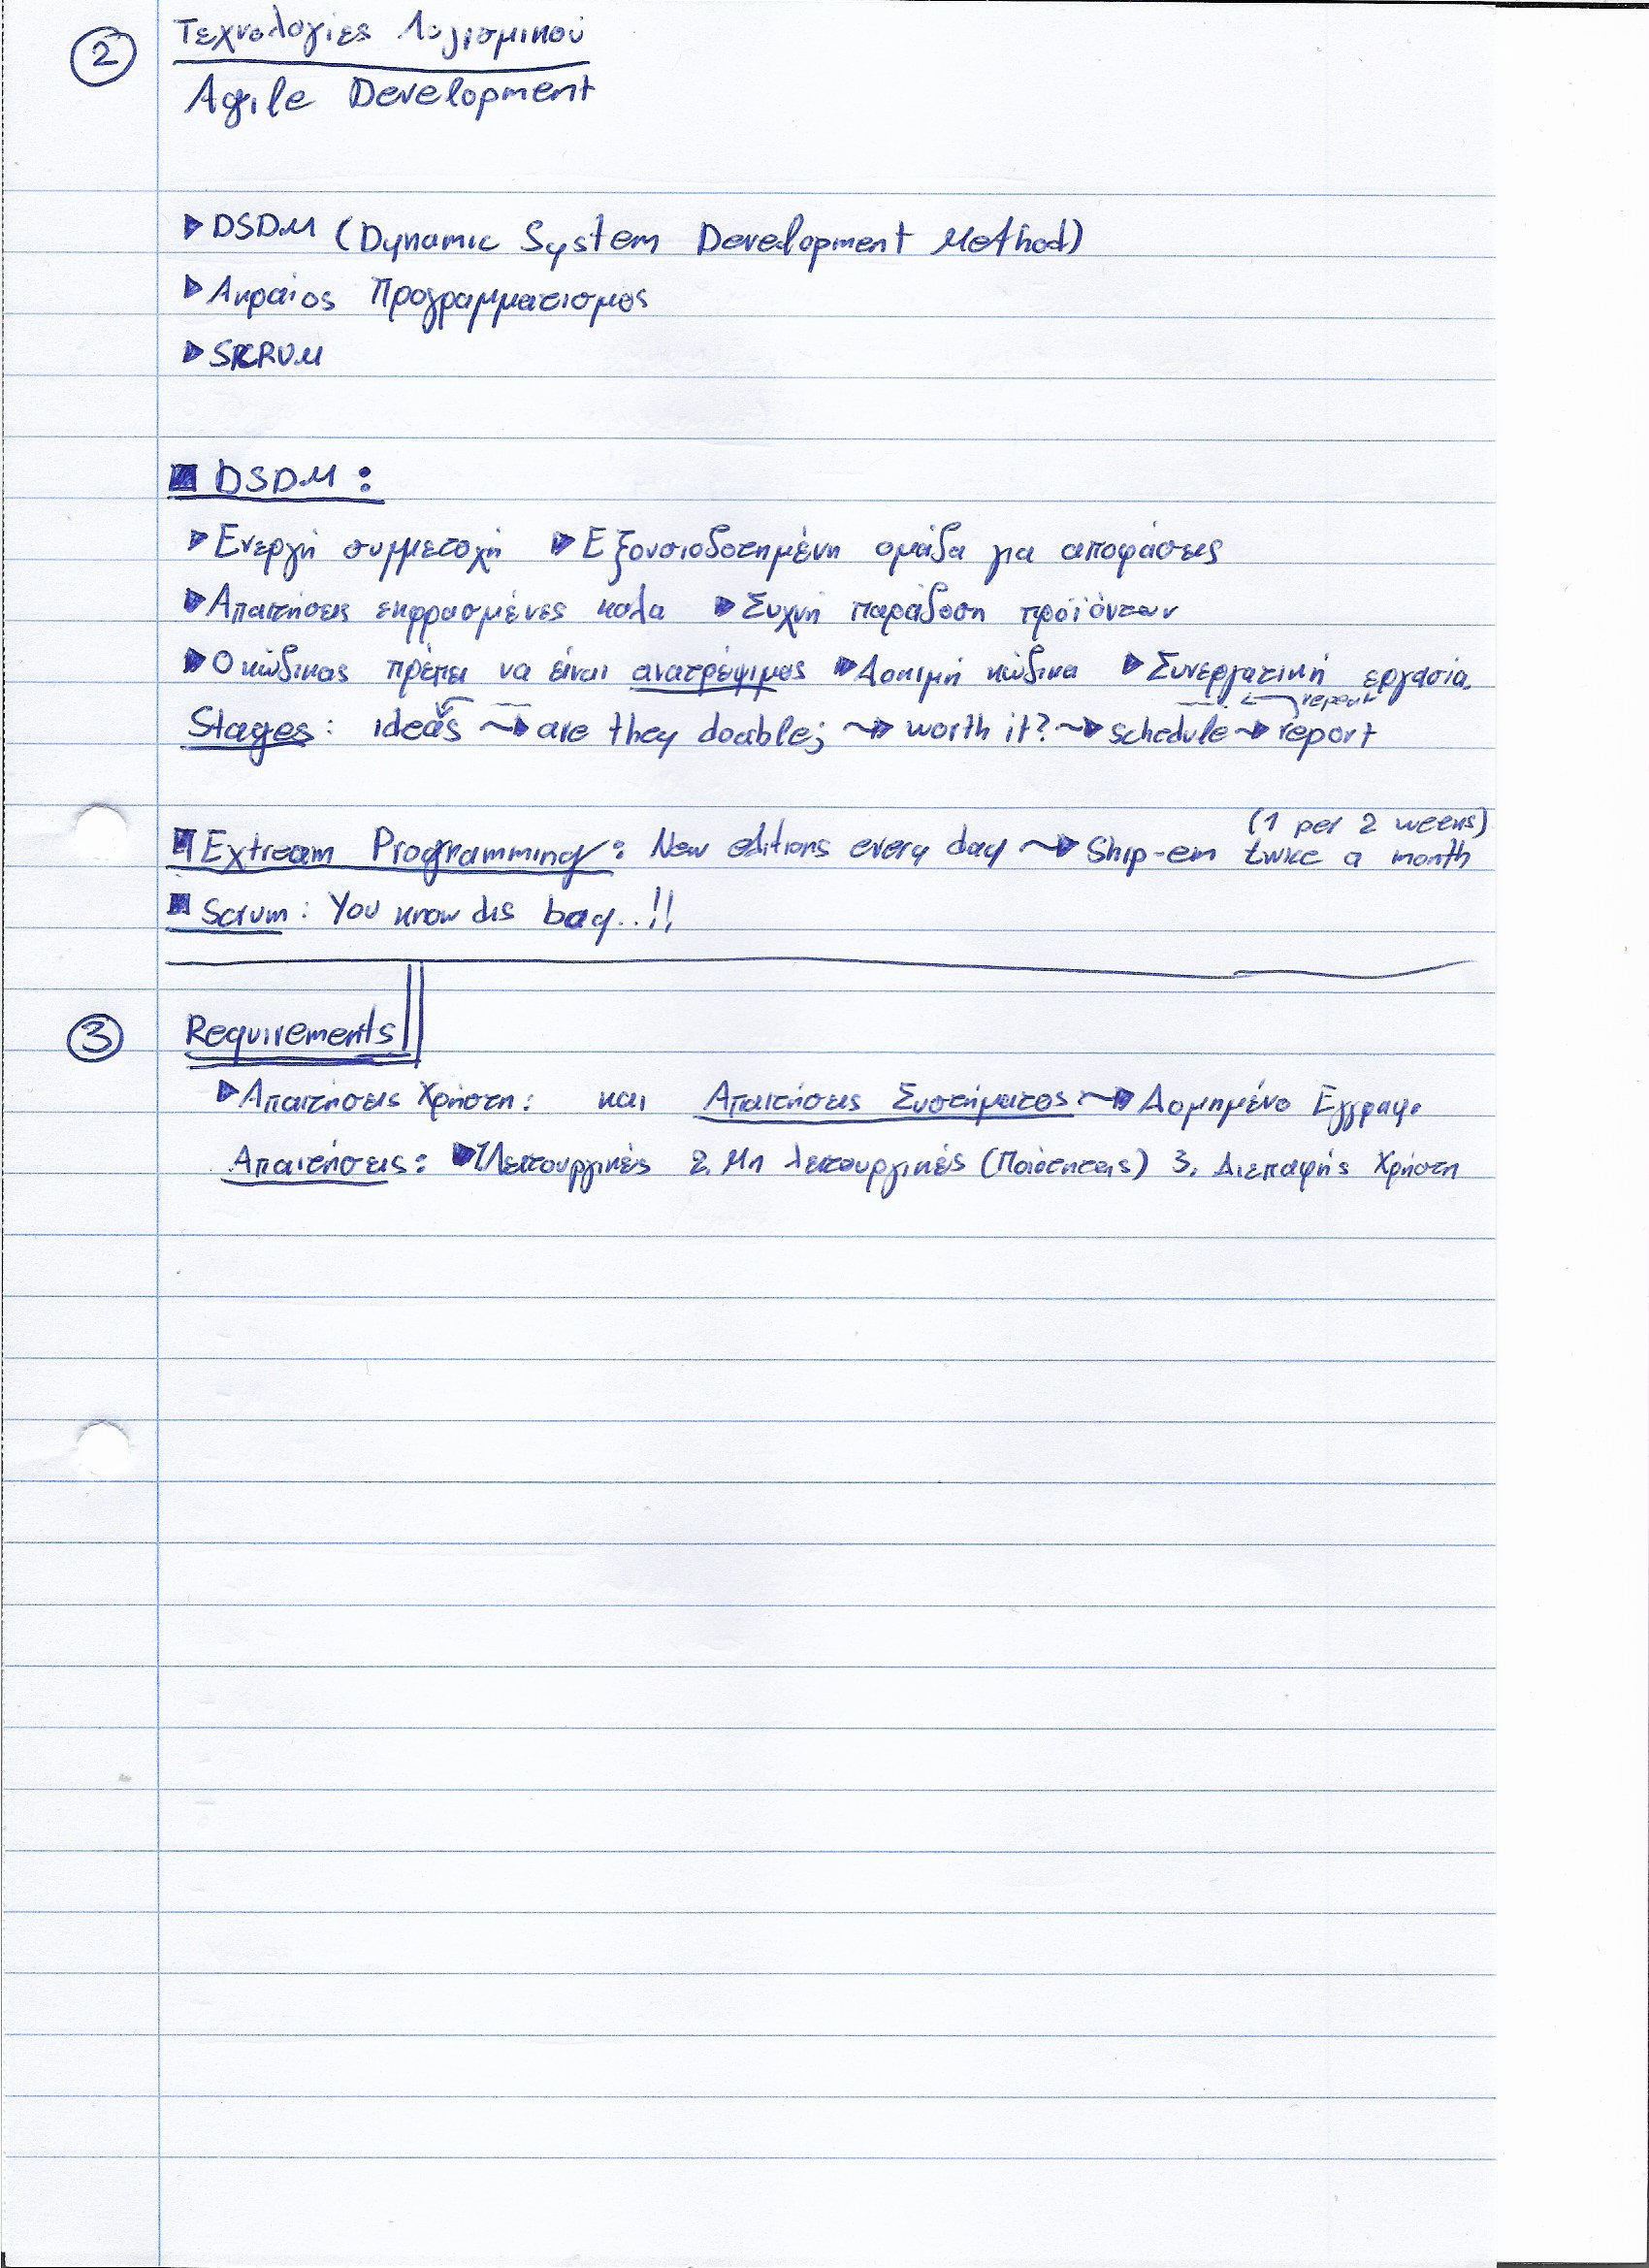 ② Τεχνολογίες Λογισμικού
Agile Development
▶ DSDM (Dynamic System Development Method)
▶ Ακραίος Προγραμματισμος
▶ SCRUM
■ DSDM :
▶ Ενεργή συμμετοχή ▶ Εξουσιοδοτημένη ομάδα για αποφάσεις
▶ Απαιτήσεις εκφρασμένες καλα ▶ Συχνή παράδοση προϊόντων
▶ Ο κώδικας πρέπει να είναι ανατρέψιμος ▶ Δοκιμή κώδικα ▶ Συνεργατική εργασία.
repeat
Stages: ideas ~▶ are they doable; ~▶ worth it? ~▶ schedule ~▶ report
(1 per 2 weeks)
■ Extream Programming: New editions every day ~▶ Ship-em twice a month
■ Scrum: You know dis bay..!!
③ Requirements
▶ Απαιτήσεις Χρήστη: και Απαιτήσεις Συστήματος ~▶ Δομημένο Εγγραφ.
Απαιτήσεις: ▶ 1. Λειτουργικές 2. Μη λειτουργικές (Ποιότητας) 3. Διεπαφής Χρήστη